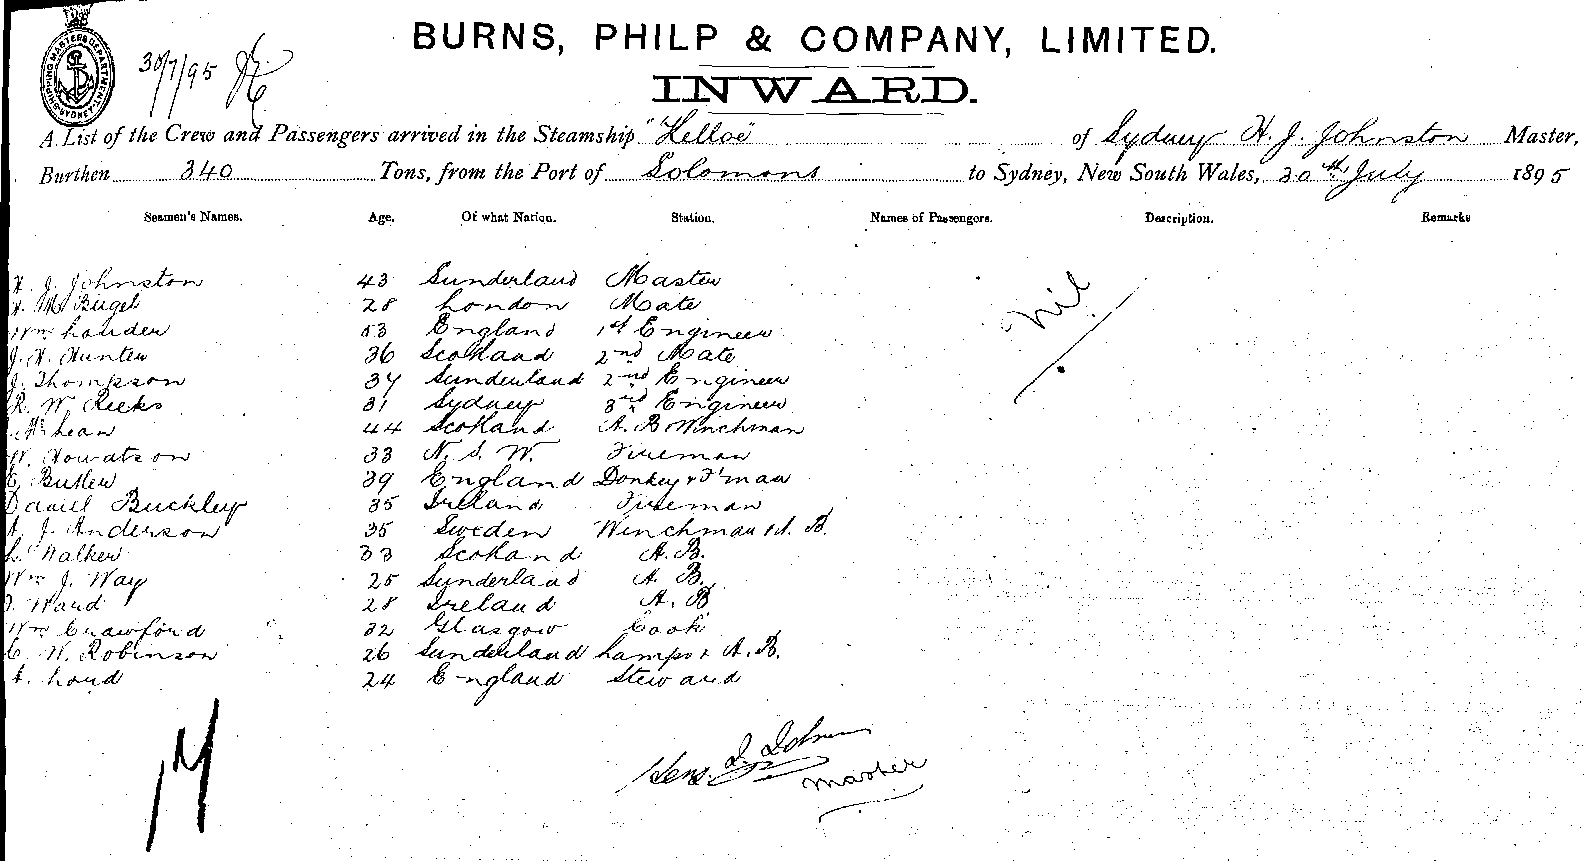 BURNS, PHILP & COMPANY, LIMITED.
SHIPPING MASTERS DEPARTMENT SYDNEY
30/7/95
INWARD.
A List of the Crew and Passengers arrived in the Steamship "Kelloe" of Sydney H. J. Johnston Master,
Burthen 340 Tons, from the Port of Solomons to Sydney, New South Wales, 30th July 1895
Seamen's Names. Age. Of what Nation. Station. Names of Passengers. Description. Remarks
H. J. Johnston 43 Sunderland Master
28 London Mate
Wm Lauder 53 England 1st Engineer
J. H. Hunter 36 Scotland 2nd Mate
J. Thompson 34 Sunderland 2nd Engineer
R. W. Reeks 31 Sydney 3rd Engineer
McLean 44 Scotland A. B. Winchman
W. Howatson 33 N. S. W. Fireman
C. Butler 39 England Donkey & F'man
Daniel Buckley 35 Ireland Fireman
A. J. Anderson 35 Sweden Winchman & A. B.
L. Walker 33 Scotland A. B.
Wm J. Way 25 Sunderland A. B.
Ward 28 Ireland A. B.
Wm Crawford 32 Glasgow Cook
C. W. Robinson 26 Sunderland Lamps & A. B.
24 England Steward
nil
17
Master